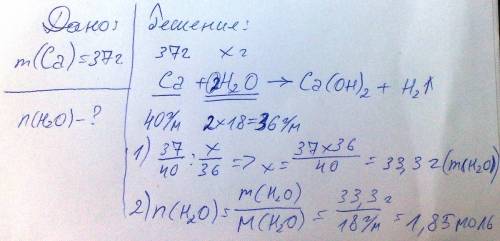 Дано:
m(Ca)=37г
n(H₂O)-?
Решение:
37г xг
Ca + 2H₂O → Ca(OH)₂ + H₂↑
40г/м 2×18=36г/м
1) 37/40 : x/36 => x = 37×36/40 = 33,3 г (m(H₂O))
2) n(H₂O) = m(H₂O)/M(H₂O) = 33,3г/18г/м = 1,85 моль